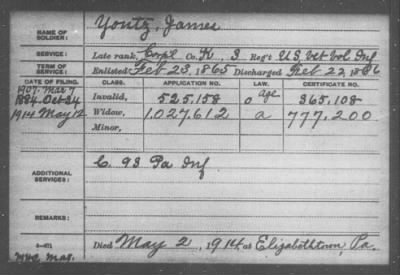 NAME OF SOLDIER: Youtz, James
SERVICE: Late rank, Corpl Co. K, 3 Reg't U.S. Vet Vol Inf
TERM OF SERVICE: Enlisted Feb 23, 1865 Discharged Feb 22, 1866
DATE OF FILING. APPLICATION NO. LAW. CERTIFICATE NO.
1907. Mar 7 age
1884. Oct 24 Invalid, 525,158 o 365,108
1914 May 12 Widow, 1,027,612 a 777,200
Minor,
ADDITIONAL SERVICES: C. 93 Pa Inf
REMARKS:
Died May 2, 1914 at Elizabethtown, Pa.